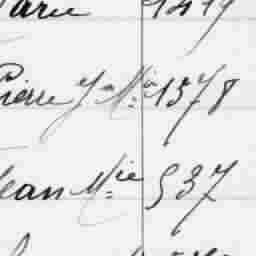 Marie 1419
Pierre Jn Mie 1578
Jean Mie 537